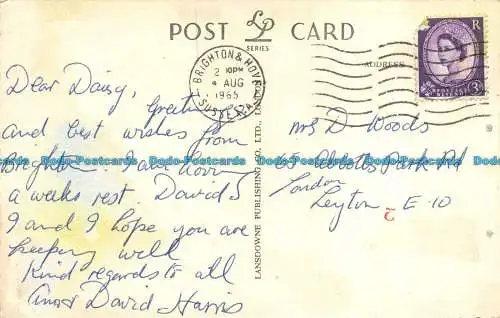 POST CARD
LP
SERIES
ADDRESS
BRIGHTON & HOVE
2 10PM
4 AUG
1965
SUSSEX
R
POSTAGE REVENUE
3D
Dear Daisy,
Greetings
and best wishes from
Brighton. I am having
a weeks rest. David S
I and I hope you are
keeping well
Kind regards to all
David Harris
Mrs D Woods
65 Park Rd
London
Leyton E-10
LANSDOWNE PUBLISHING CO., LTD., LONDON
Dodo-Postcards Dodo-Postcards Dodo-Postcards Dodo-Postcards Dodo-Postcards